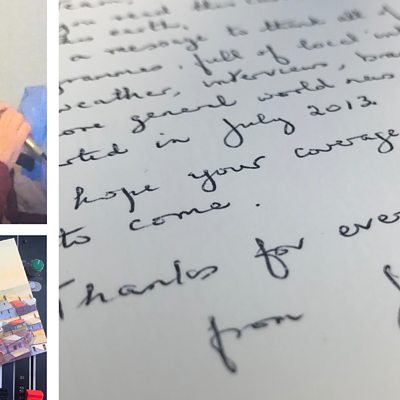 you read this
this earth.
a message to thank all of
grammes, full of local
weather, interviews,
ore general world news
rted in July 2013.
hope your coverage
to come.
Thanks for ever
from